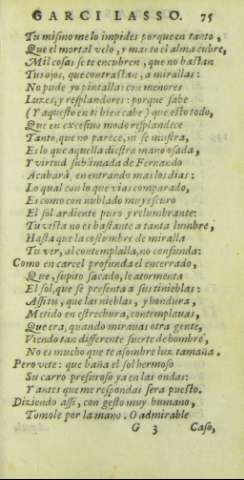 GARCI LASSO. 75
Tu mismo me lo impides porque en tanto,
Que el mortal velo, y manto el alma cubre,
Mil cosas se te encubren, que no bastan
Tus ojos, que contrastan, a mirallas:
No pude yo pintallas con menores
Luzes, y resplandores: porque sabe
(Y aquesto en ti bien cabe) que esto todo,
Que en excesivo modo resplandece
Tanto, que no parece, ni se muestra,
Es lo que aquella diestra mano osada,
Y virtud sublimada de Fernando
Acabarà, en entrando mas los dias:
Lo qual con lo que vias comparado,
Es como con nublado muy escuro
El sol ardiente puro y relumbrante:
Tu vista no es bastante a tanta lumbre,
Hasta que la costumbre de miralla
Tu ver, al contemplalla, no confunda:
Como en carcel profunda el encerrado,
Que, supito sacado, le atormenta
El sol, que se presenta a sus tinieblas:
Assi tu, que las nieblas, y hondura,
Metido en estrechura, contemplavas,
Que era, quando miravas otra gente,
Viendo tan differente suerte de hombre,
No es mucho que te asombre luz tamaña.
Pero vete: que baña el sol hermoso
Su carro presuroso ya en las ondas:
Y antes que me respondas sera puesto.
Diziendo assi, con gesto muy humano,
Tomole por la mano. O admirable
G 3 Caso,